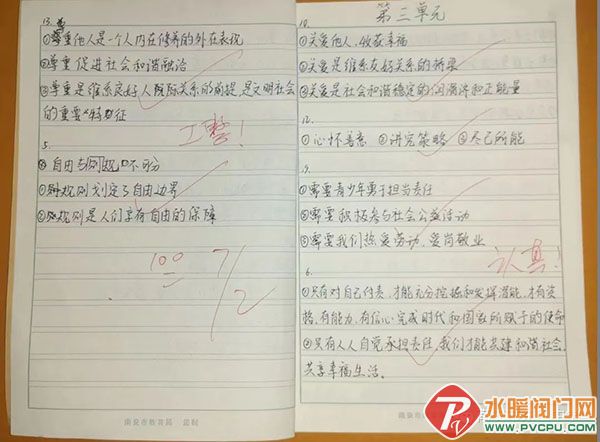 13.
①尊重他人是一个人内在修养的外在表现
②尊重促进社会和谐融洽
③尊重是维系良好人际关系的前提,是文明社会
的重要特征
工整!
5.
①自由与规则不可分
②规则划定了自由边界
③规则是人们享有自由的保障
100
7/2
南安市教育局 监制
第三单元
10.
①关爱他人,收获幸福
②关爱是维系友好关系的桥梁
③关爱是社会和谐稳定的润滑剂和正能量
12.
①心怀善意 ②讲究策略 ③尽己所能
9.
①需要青少年勇于担当责任
②需要积极参与社会公益活动
③需要我们热爱劳动,爱岗敬业
认真!
6.
①只有对自己付责,才能充分挖掘和发挥潜能,才有资
格,有能力,有信心完成时代和国家所赋予的使命
②只有人人自觉承担责任,我们才能共建和谐社会,
共享幸福生活。
PV 水暖阀门网
WWW.PVCPU.COM